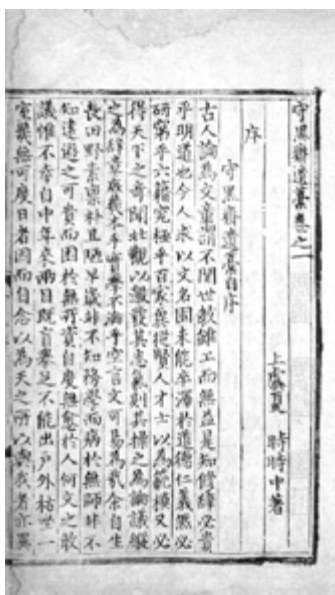 守黑齋遺藁卷之一
上虞夏 時時中著
序
守黑齋遺藁自序
古人論為文章謂不関世教雖工而無益是知修辭必貴
乎明道也今人求以文名固未能卒濶於道德仁義然必
研窮乎六籍究極乎百家與從賢人才士以為範模又必
得天下之奇聞壯觀以激發其志氣則其操之為論議綴
之為辭章庶幾本乎實學不淪乎空言文可易為哉余自生
長田野素禀朴且陋早歲非不知務學而病於無師非不
知遠遊之可資而困於無可資自度無愈於人何文之敢
議惟不幸自中年來兩目既盲蹇足不能出戶外枯坐一
室幾無可度日者因而自念以為天之所以與我者亦異